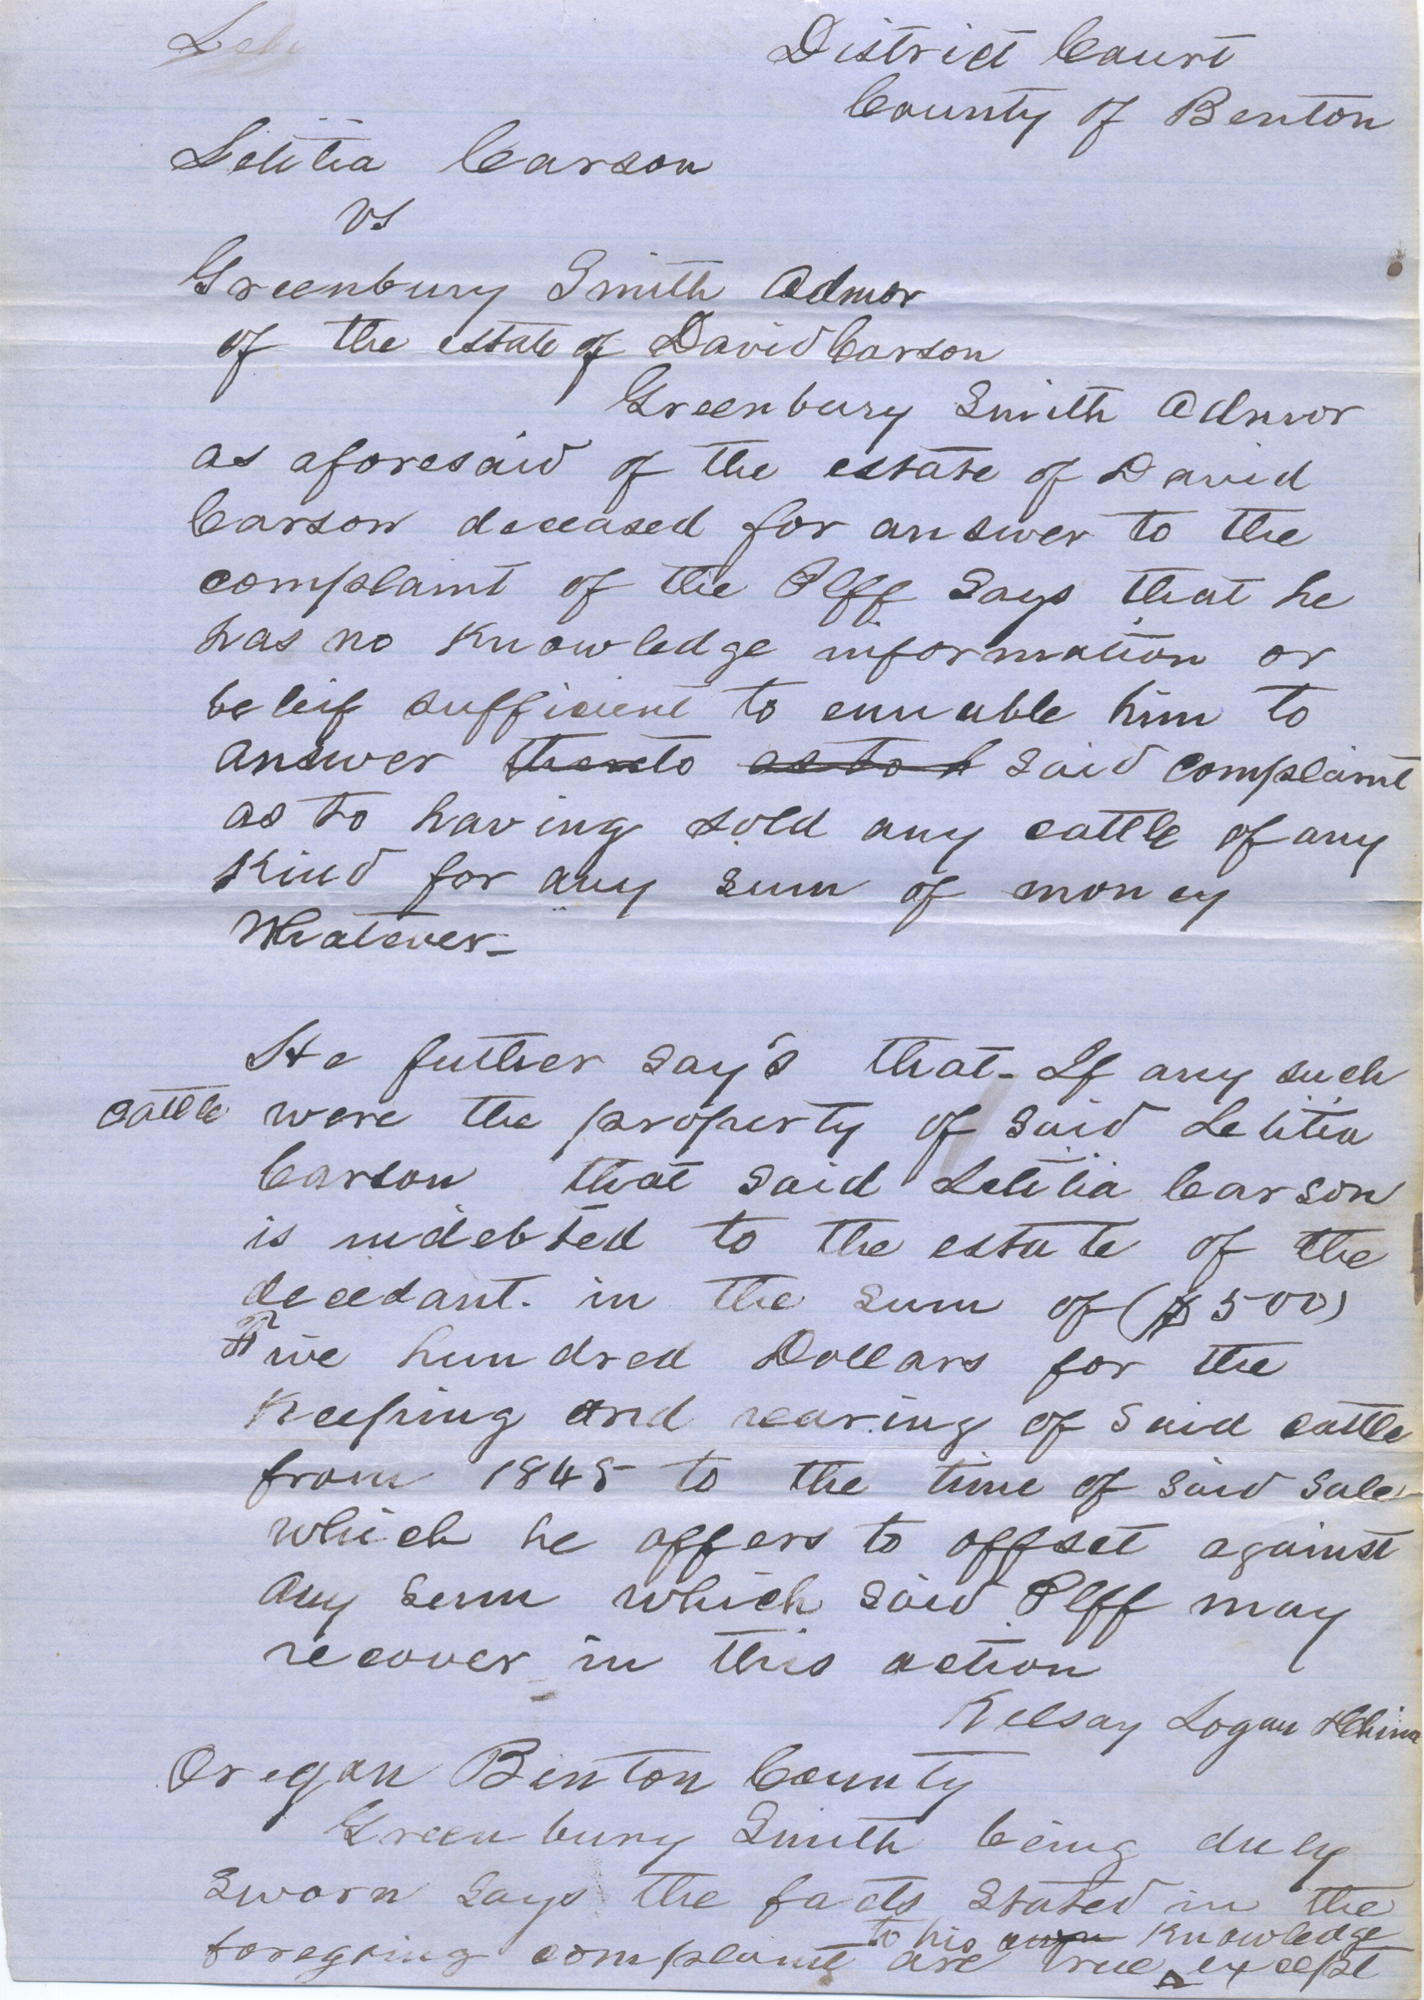 District Court
County of Benton
Letitia Carson
vs
Greenbury Smith Admor
of the estate of David Carson
Greenbury Smith Admor
as aforesaid of the estate of David
Carson deceased for answer to the
complaint of the Plff says that he
has no knowledge information or
beleif sufficient to ennable him to
answer thereto as to said complaint
as to having sold any cattle of any
kind for any sum of money
whatever_
He futher say's that- If any such
cattle were the property of said Letitia
Carson that said Letitia Carson
is indebted to the estate of the
decedant. in the sum of ($500)
Five hundred Dollars for the
keeping and rearing of said cattle
from 1845 to the time of said sale
which he offers to offset against
any sum which said Plff may
recover in this action
Kelsay Logan
Oregon Benton County
Greenbury Smith being duly
sworn says the facts stated in the
to his own knowledge
foregoing complaint are true ^ except